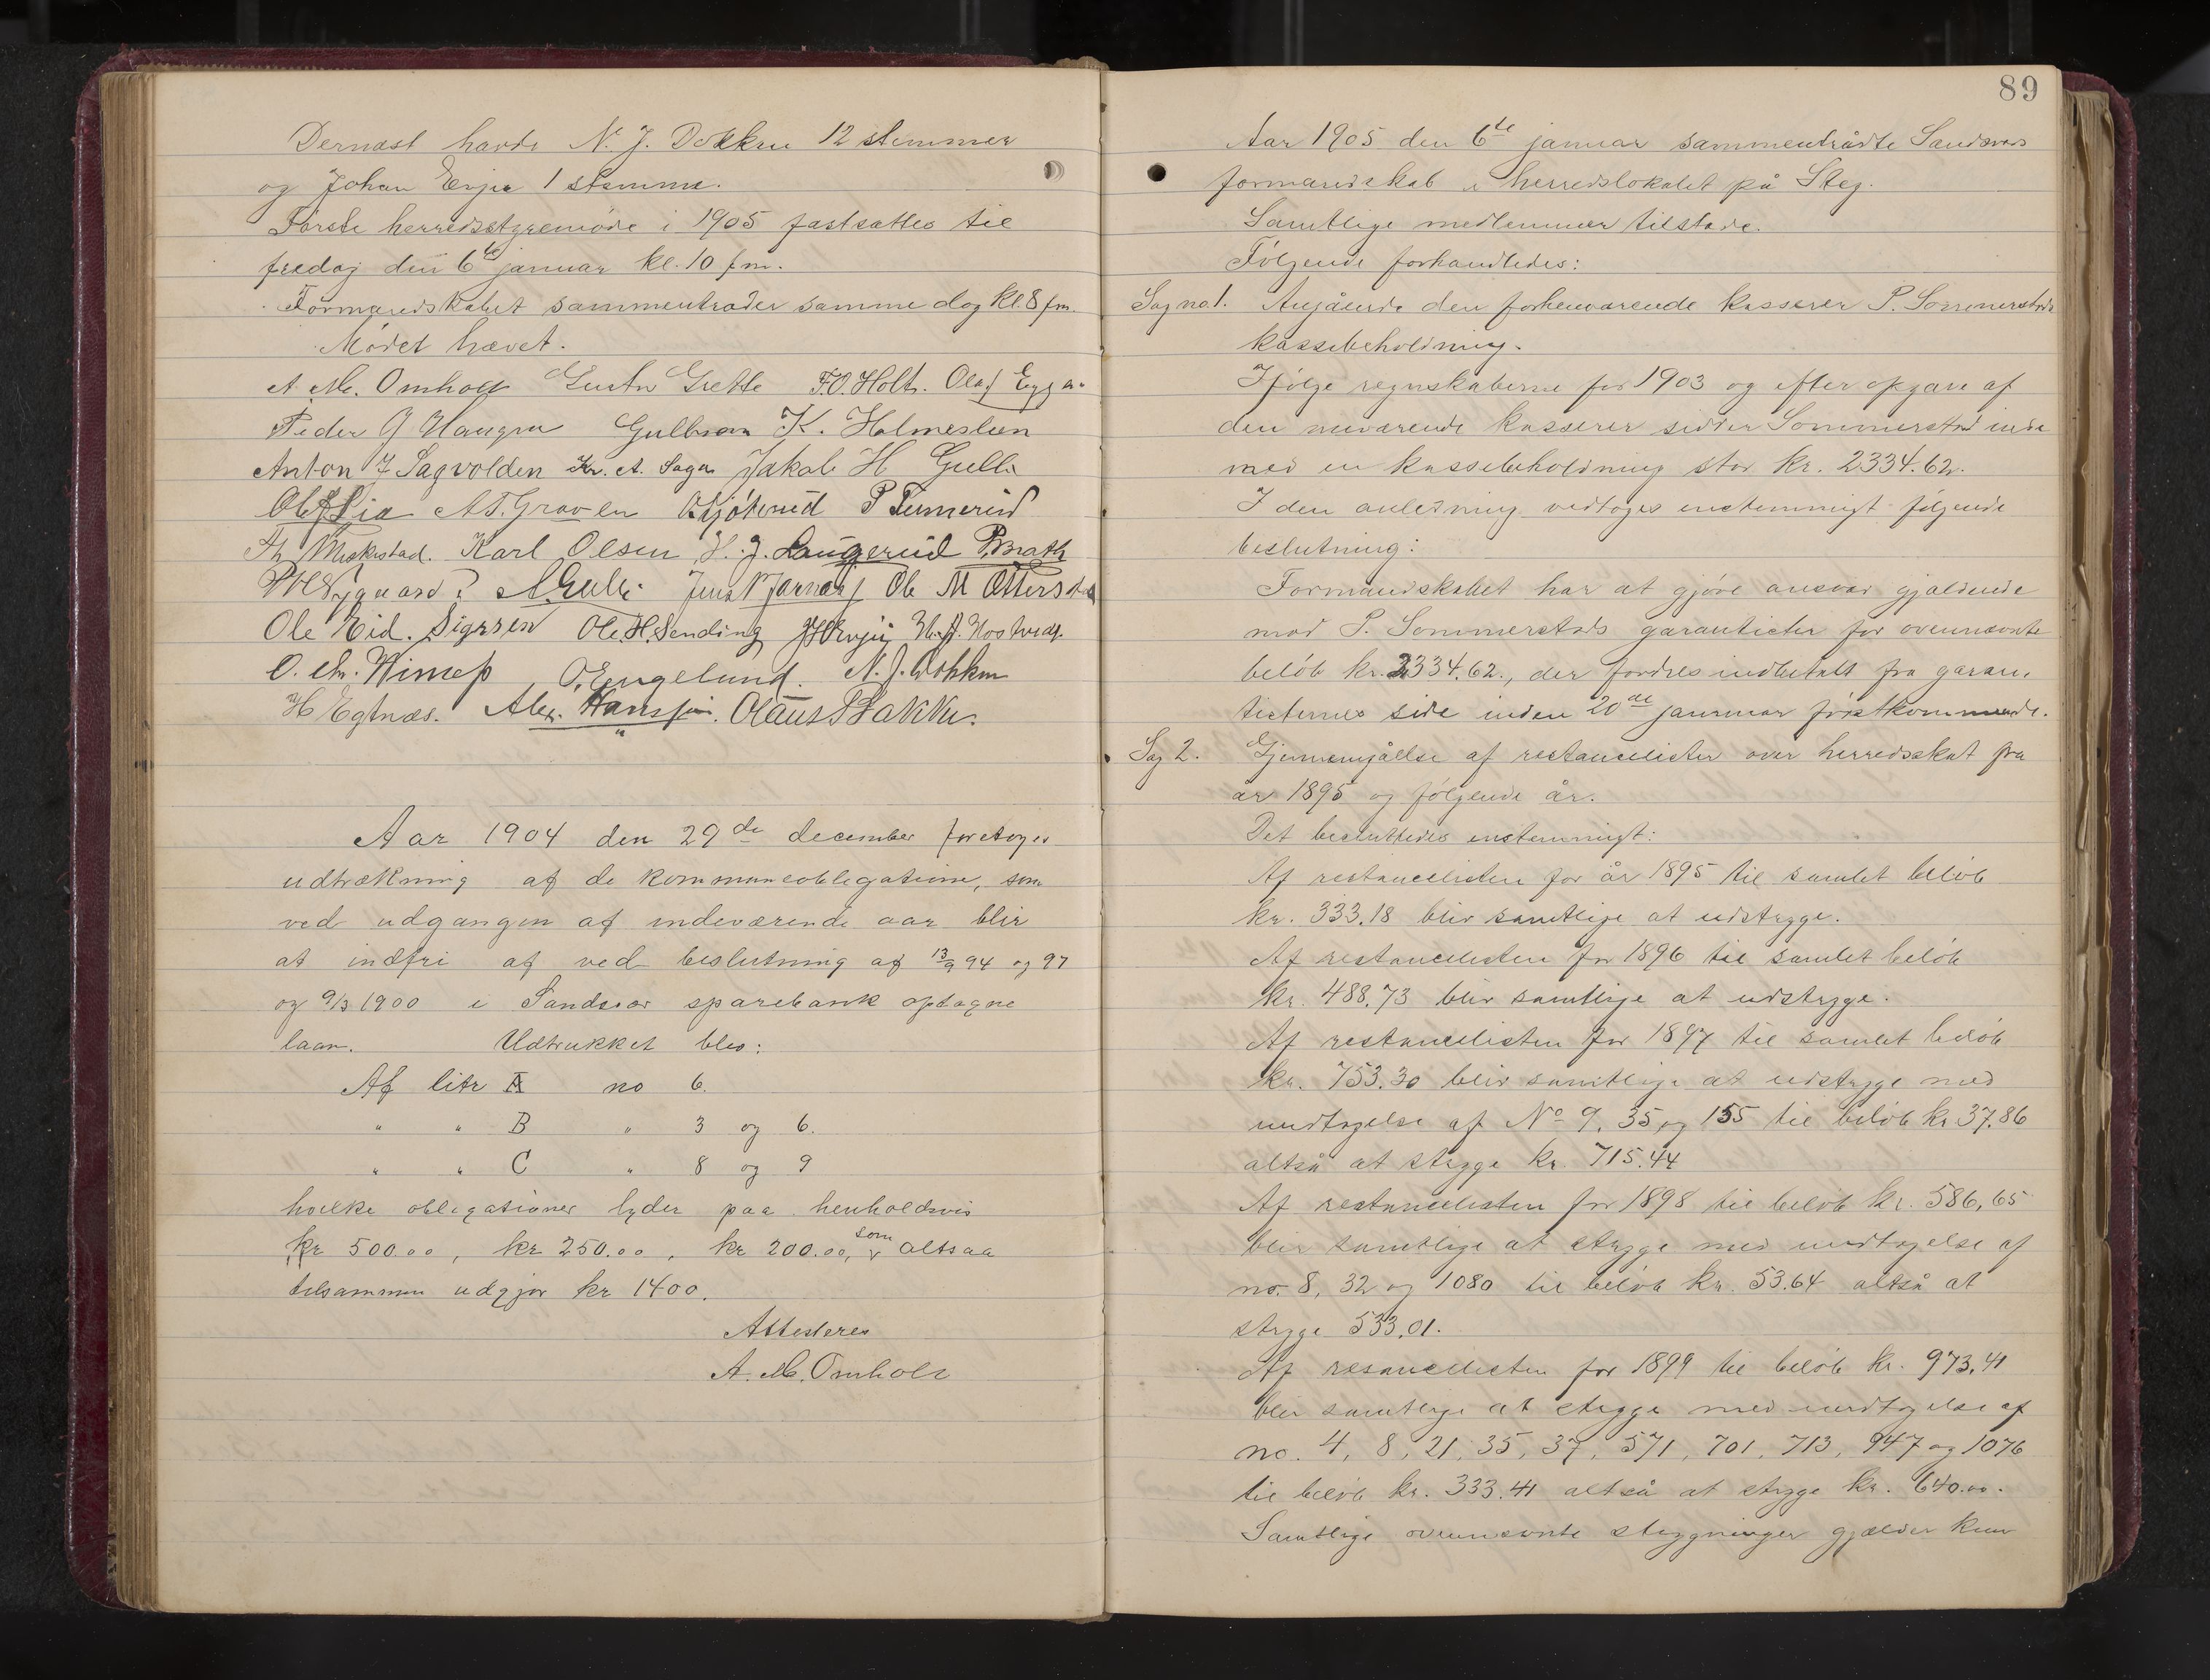 Dernæst havde N. J. Dokken 12 stemmer
og Johan Evju 1 stemme.
Første herredsstyremøde i 1905 fastsattes til
fredag den 6te januar kl. 10 fm.
Formandskabet sammentræder samme dag kl. 8 fm.
Mødet hævet.
A. M. Omholt Gustav Grette F.O. Holt. Olaf
Peder G Haugen Gulbran K. Holmeslien
Anton J Sagvolden Kr. A. Saga Jakob H Gulli
Ole Lia A.T. Graven P Temmerud
Th Karl Olsen H. J. Langerud
A. Gulli Jens Ole M Otterstad
Ole Eid. Sigrsen Ole H. Sending
O. Chr. O. Engelund. N. J. Dokken
H Egtnæs. Alex. Hanssen. Olaus Bakken.
Aar 1904 den 29de december foretoges
udtrækning af de kommuneobligatione, som
ved udgangen af indeværende aar blir
at indfri af ved beslutning af 13/9 94 og 97
og 9/3 1900 i Sandsvær sparebank optagne
laan. Udtrukket blev:
Af litr A no 6.
" " B " 3 og 6.
" " C " 8 og 9
hvilke obligationer lyder paa henholdsvis
kr 500.00, kr 250.00, kr 200.00, som altsaa
tilsammen udgjør kr 1400.
Attesteres
A. M. Omholt
89
Aar 1905 den 6te januar sammentrådte Sandsvær
formandskab i herredslokalet på Steg.
Samtlige medlemmer tilstede.
Følgende forhandledes:
Sag no 1. Angående den forhenværende kasserer P. Sommerstads
kassebeholdning.
Ifølge regnskaberne for 1903 og efter opgave af
den nuværende kasserer sidder Sommerstad inde
med en kassebeholdning stor kr. 2334.62.
I den anledning vedtoges enstemmigt følgende
beslutning:
Formandskabet har at gjøre ansvar gjældende
mod P. Sommerstads garantister for ovennævnte
beløb kr. 2334.62., der fordres indbetalt fra garan-
tisternes side inden 20de januar førstkommende.
Sag 2. Gjennemgåelse af restancelister over herredsskat fra
år 1895 og følgende år.
Det besluttedes enstemmigt:
Af restancelisten for år 1895 til samlet beløb
kr. 333.18 blir samtlige at udstryge.
Af restancelisten for 1896 til samlet beløb
kr. 488.73 blir samtlige at udstryge.
Af restancelisten for 1897 til samlet beløb
kr. 753.30 blir samtlige at udstryge med
undtagelse af No 9, 35 og 155 til beløb kr 37.86
altså at stryge kr. 715.44
Af restancelisten for 1898 til beløb kr. 586,65
blir samtlige at stryge med undtagelse af
no. 8, 32 og 1080 til beløb kr. 53.64 altså at
stryge 533.01.
Af resancelisten for 1899 til beløb kr. 973.41
blir samtlige at stryge med undtagelse af
no. 4, 8, 21, 35, 37, 571, 701, 713, 947 og 1076
til beløb kr. 333.41 altså at stryge kr. 640.00.
Samtlige ovennævnte strygninger gjælder kun